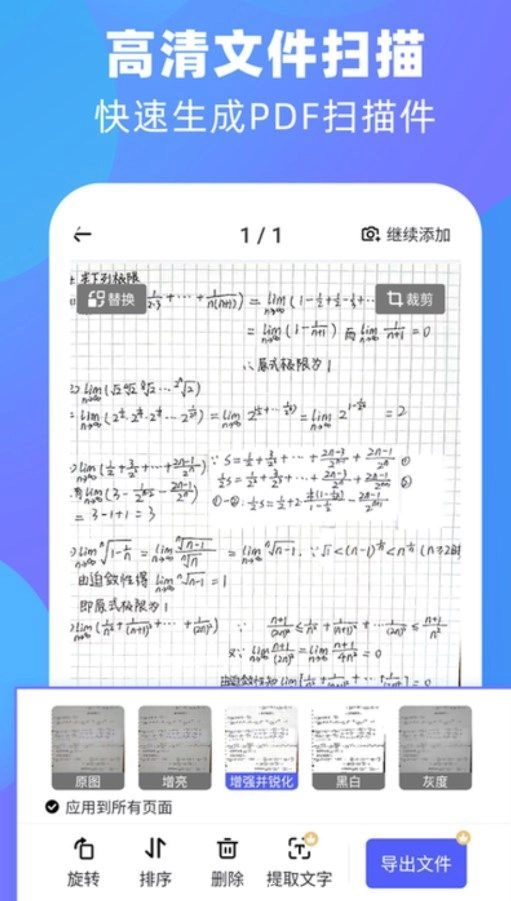 高清文件扫描
快速生成PDF扫描件
1 / 1
继续添加
求下列极限
替换
裁剪
1/2·3 + ··· + 1/n(n+1)) = lim n→∞ (1 - 1/2 + 1/2 - 1/3 + ··
= lim n→∞ (1 - 1/(n+1)) 而 lim n→∞ 1/(n+1) = 0
∴ 原式极限为1
lim n→∞ (√2 ⁴√2 ⁸√2 ··· ²ⁿ√2)
= lim n→∞ (2^(1/2) · 2^(1/4) · 2^(1/8) ··· 2^(1/2ⁿ)) = lim n→∞ 2^(1/2 + ··· + 1/2ⁿ) = lim n→∞ 2^(1 - 1/2ⁿ) = 2
lim n→∞ (1/2 + 3/2² + ··· + (2n-1)/2ⁿ) ∵ S = 1/2 + 3/2² + ··· + (2n-3)/2ⁿ⁻¹ + (2n-1)/2ⁿ ①
1/2 S = 1/2² + 3/2³ + ··· + (2n-3)/2ⁿ + (2n-1)/2ⁿ⁺¹ ②
lim n→∞ (3 - 1/2ⁿ⁻² - (2n-1)/2ⁿ) ①-②: 1/2 S = 1/2 + 2·
= 3-1+1 = 3
lim n→∞ ⁿ√(1 - 1/n) = lim n→∞ ⁿ√(n-1) / ⁿ√n = lim n→∞ ⁿ√(n-1), ∵ √1 < (n-1)^(1/n) < n^(1/n) (n≥2时
由迫敛性得 lim n→∞ ⁿ√(n-1) = 1
即原式极限为1
lim n→∞ (1/n² + 1/(n+1)² + ··· + 1/(2n)²) ∵ (n+1)/(2n)² ≤ 1/n² + 1/(n+1)² + ··· + 1/(2n)² ≤ (n+1)/n²
又∵ lim n→∞ (n+1)/(2n)² = lim n→∞ (n+1)/4n² = 0
原图
增亮
增强并锐化
黑白
灰度
应用到所有页面
旋转
排序
删除
提取文字
导出文件